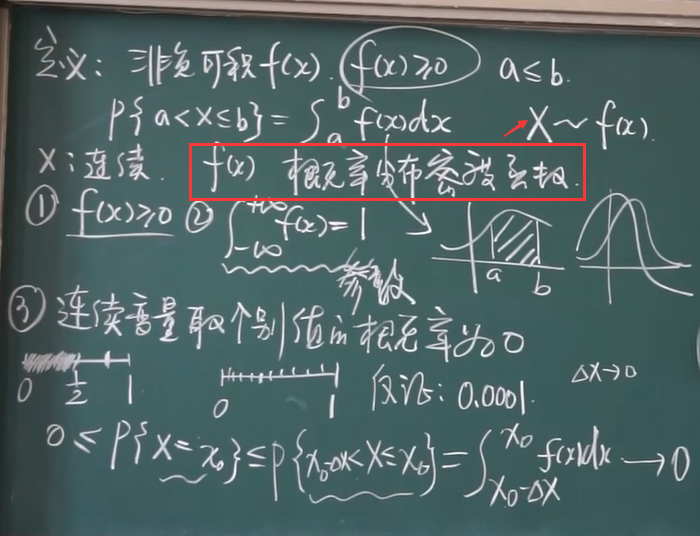 定义：非负可积f(x). f(x)≥0 a≤b.
P{a<X≤b}=∫_a^b f(x)dx X~f(x).
X：连续. f(x) 概率分布密度函数.
① f(x)≥0 ② ∫_{-∞}^{+∞} f(x)=1
参数
a b
③ 连续变量取个别值的概率为0
0 1/2 1 0 1 反证：0.0001. ΔX→0
0≤P{X=x₀}≤P{x₀-Δx<X≤x₀}=∫_{X₀-ΔX}^{X₀} f(x)dx→0